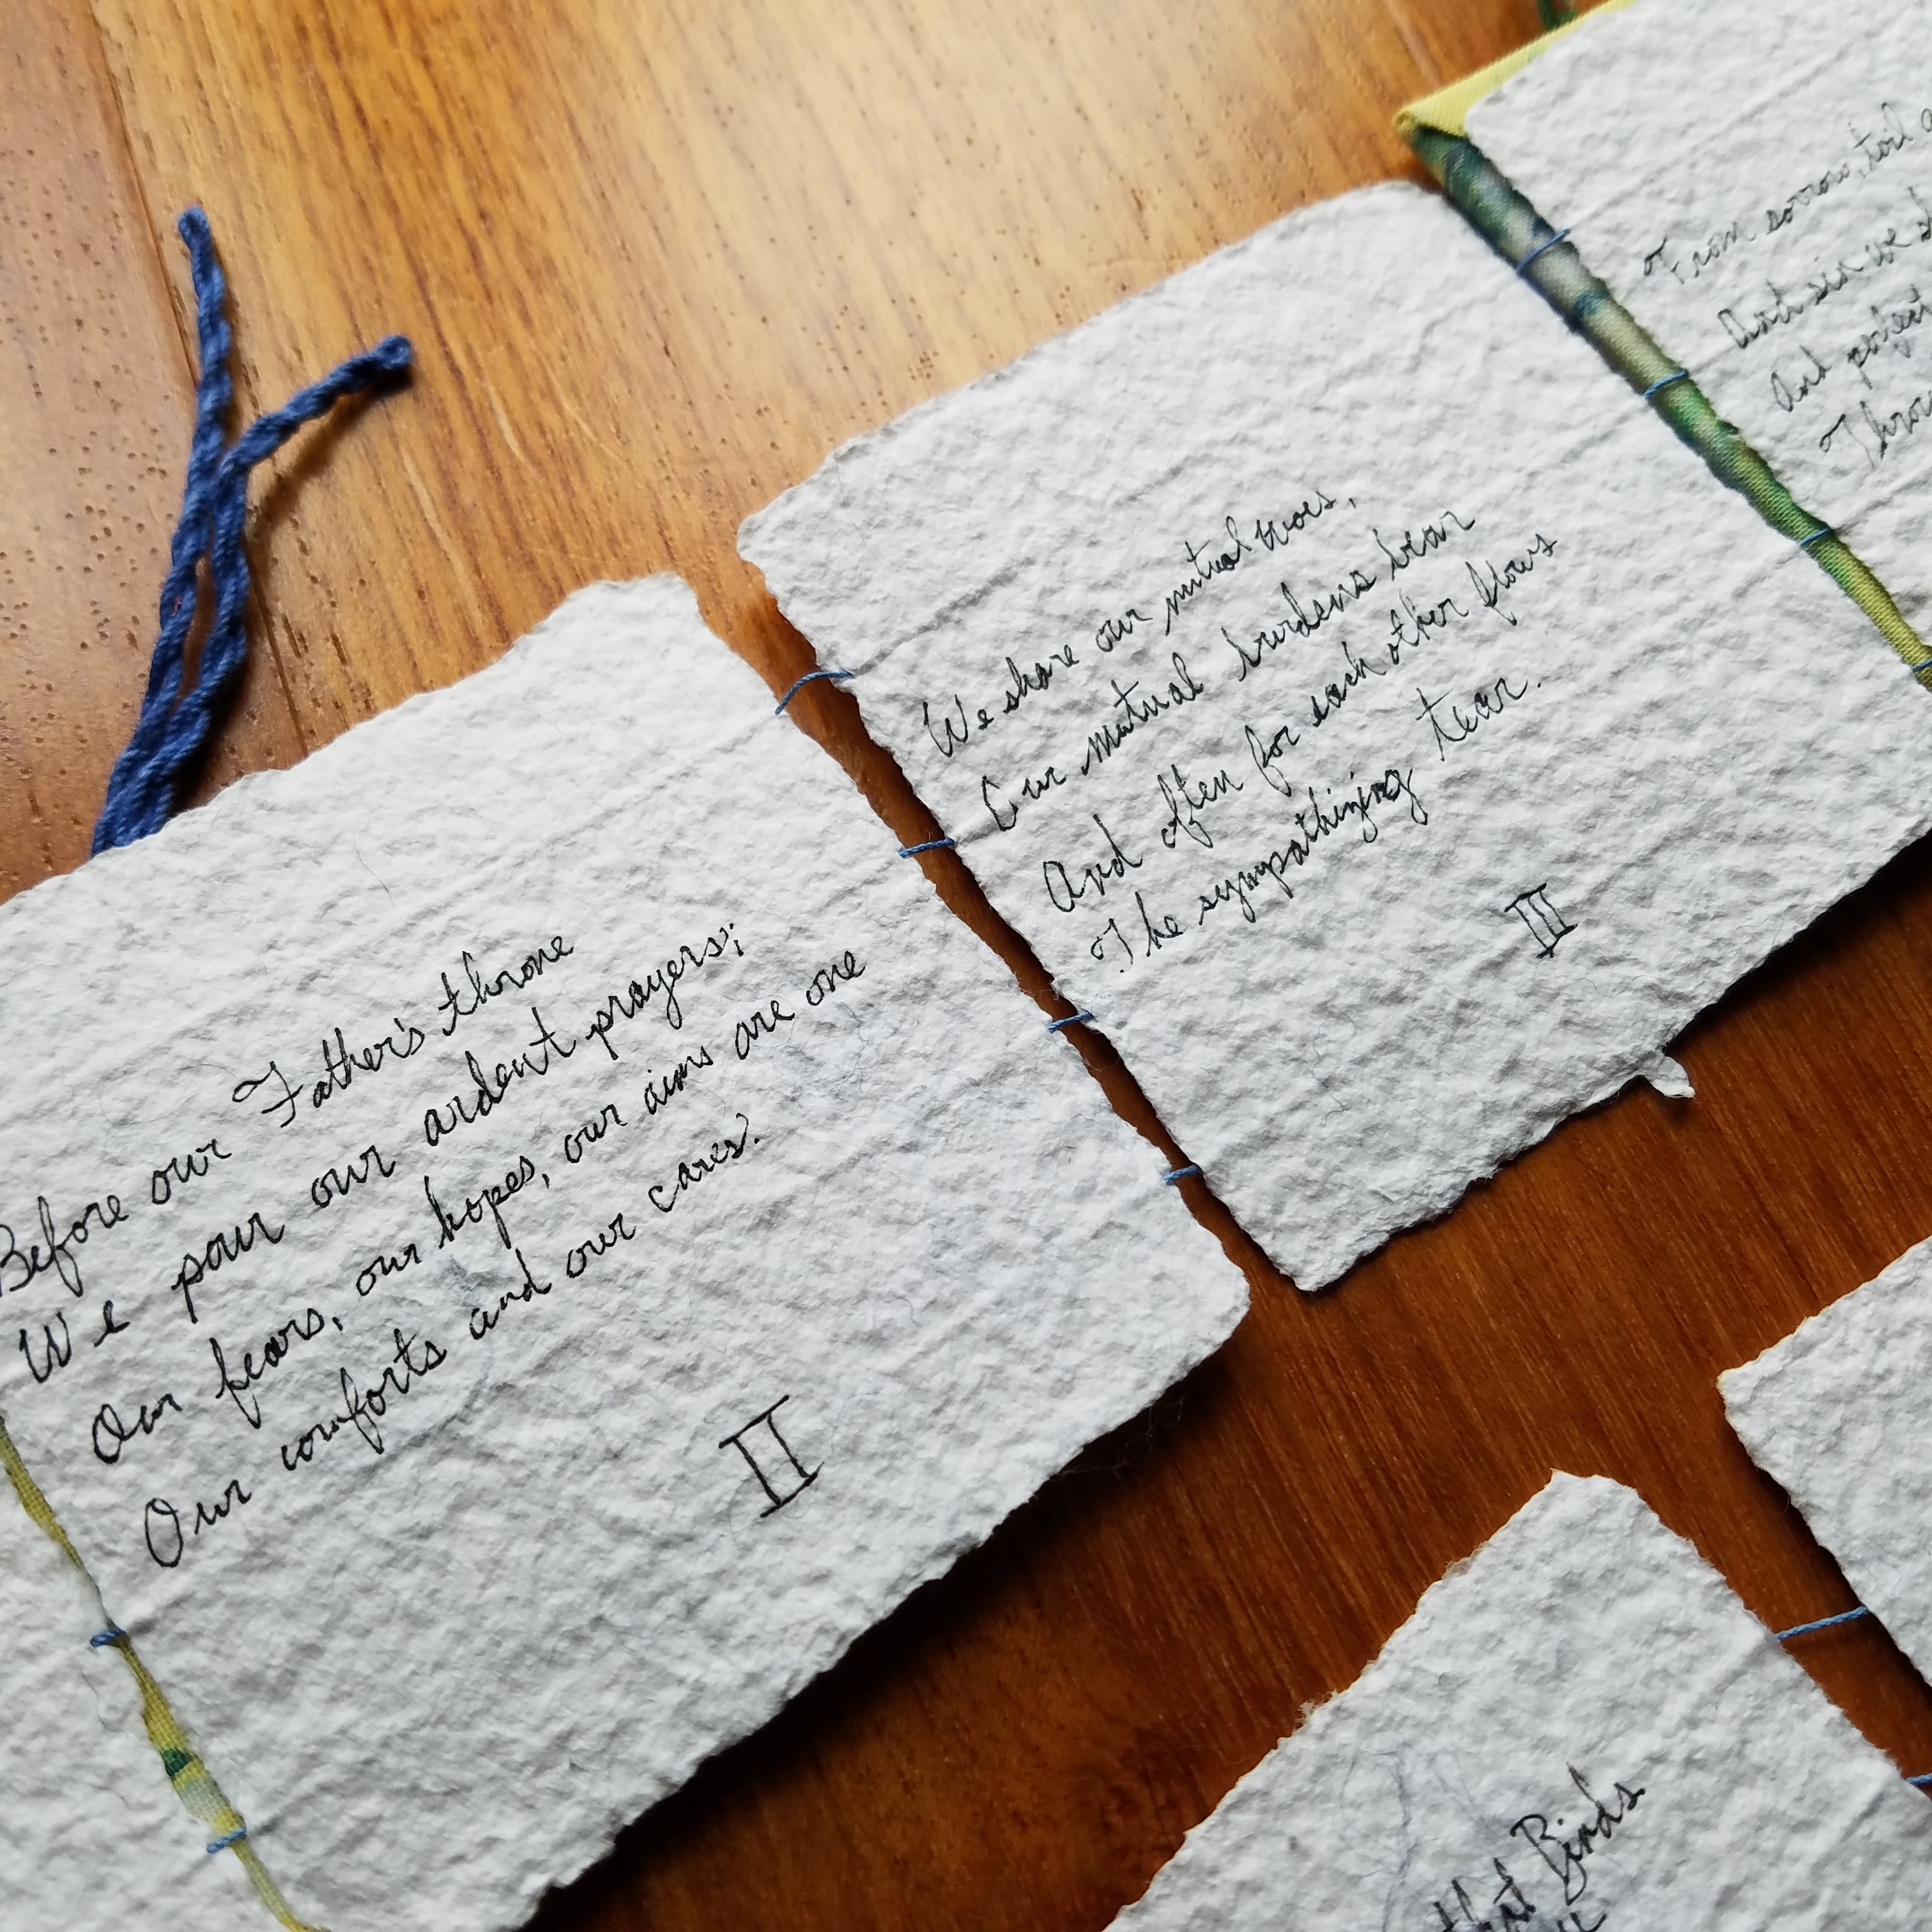 Before our Father's throne
We pour our ardent prayers;
Our fears, our hopes, our aims are one
Our comforts and our cares.
II
We share our mutual woes,
Our mutual burdens bear
And often for each other flows
The sympathizing tear.
III
From sorrow, toil
And sin we
And
that Birds